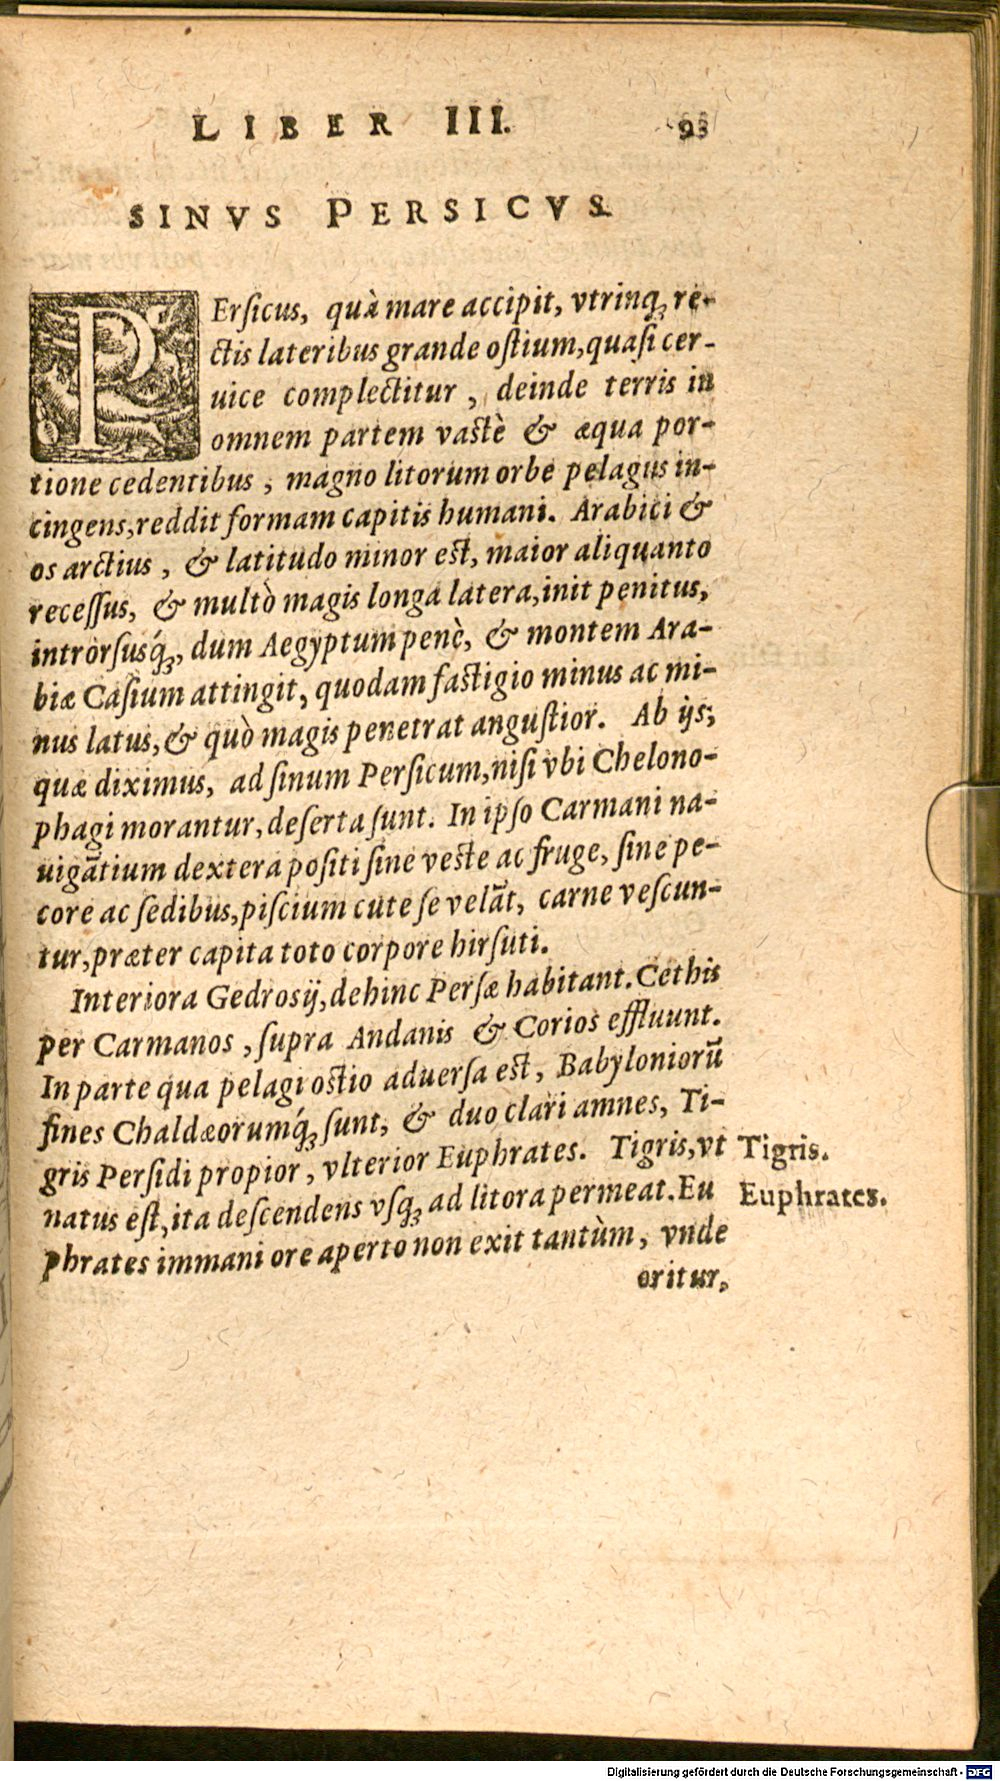 LIBER III. 93
SINVS PERSICVS.
PErſicus, quà mare accipit, vtrinq; re-
ctis lateribus grande oſtium, quaſi cer-
uice complectitur, deinde terris in
omnem partem vastè & æqua por-
tione cedentibus, magno litorum orbe pelagus in-
cingens, reddit formam capitis humani. Arabici &
os arctius, & latitudo minor est, maior aliquanto
receſſus, & multò magis longa latera, init penitus,
introrſusq́;, dum Aegyptum penè, & montem Ara-
biæ Caſium attingit, quodam fastigio minus ac mi-
nus latus, & quò magis penetrat anguſtior. Ab ijs;
quæ diximus, ad ſinum Perſicum, niſi vbi Chelono-
phagi morantur, deſerta ſunt. In ipſo Carmani na-
uigātium dextera poſiti ſine veste ac fruge, ſine pe-
core ac ſedibus, piſcium cute ſe velāt, carne veſcun-
tur, præter capita toto corpore hirſuti.
Interiora Gedrosij, dehinc Perſæ habitant. Cethis
per Carmanos, ſupra Andanis & Corios effluunt.
In parte qua pelagi ostio aduerſa est, Babyloniorū
fines Chaldæorumq́; ſunt, & duo clari amnes, Ti-
gris Perſidi propior, vlterior Euphrates. Tigris, vt
Tigris.
natus eſt, ita deſcendens vſq; ad litora permeat. Eu
Euphrates.
phrates immani ore aperto non exit tantùm, vnde
oritur,
Digitalisierung gefördert durch die Deutsche Forschungsgemeinschaft - DFG